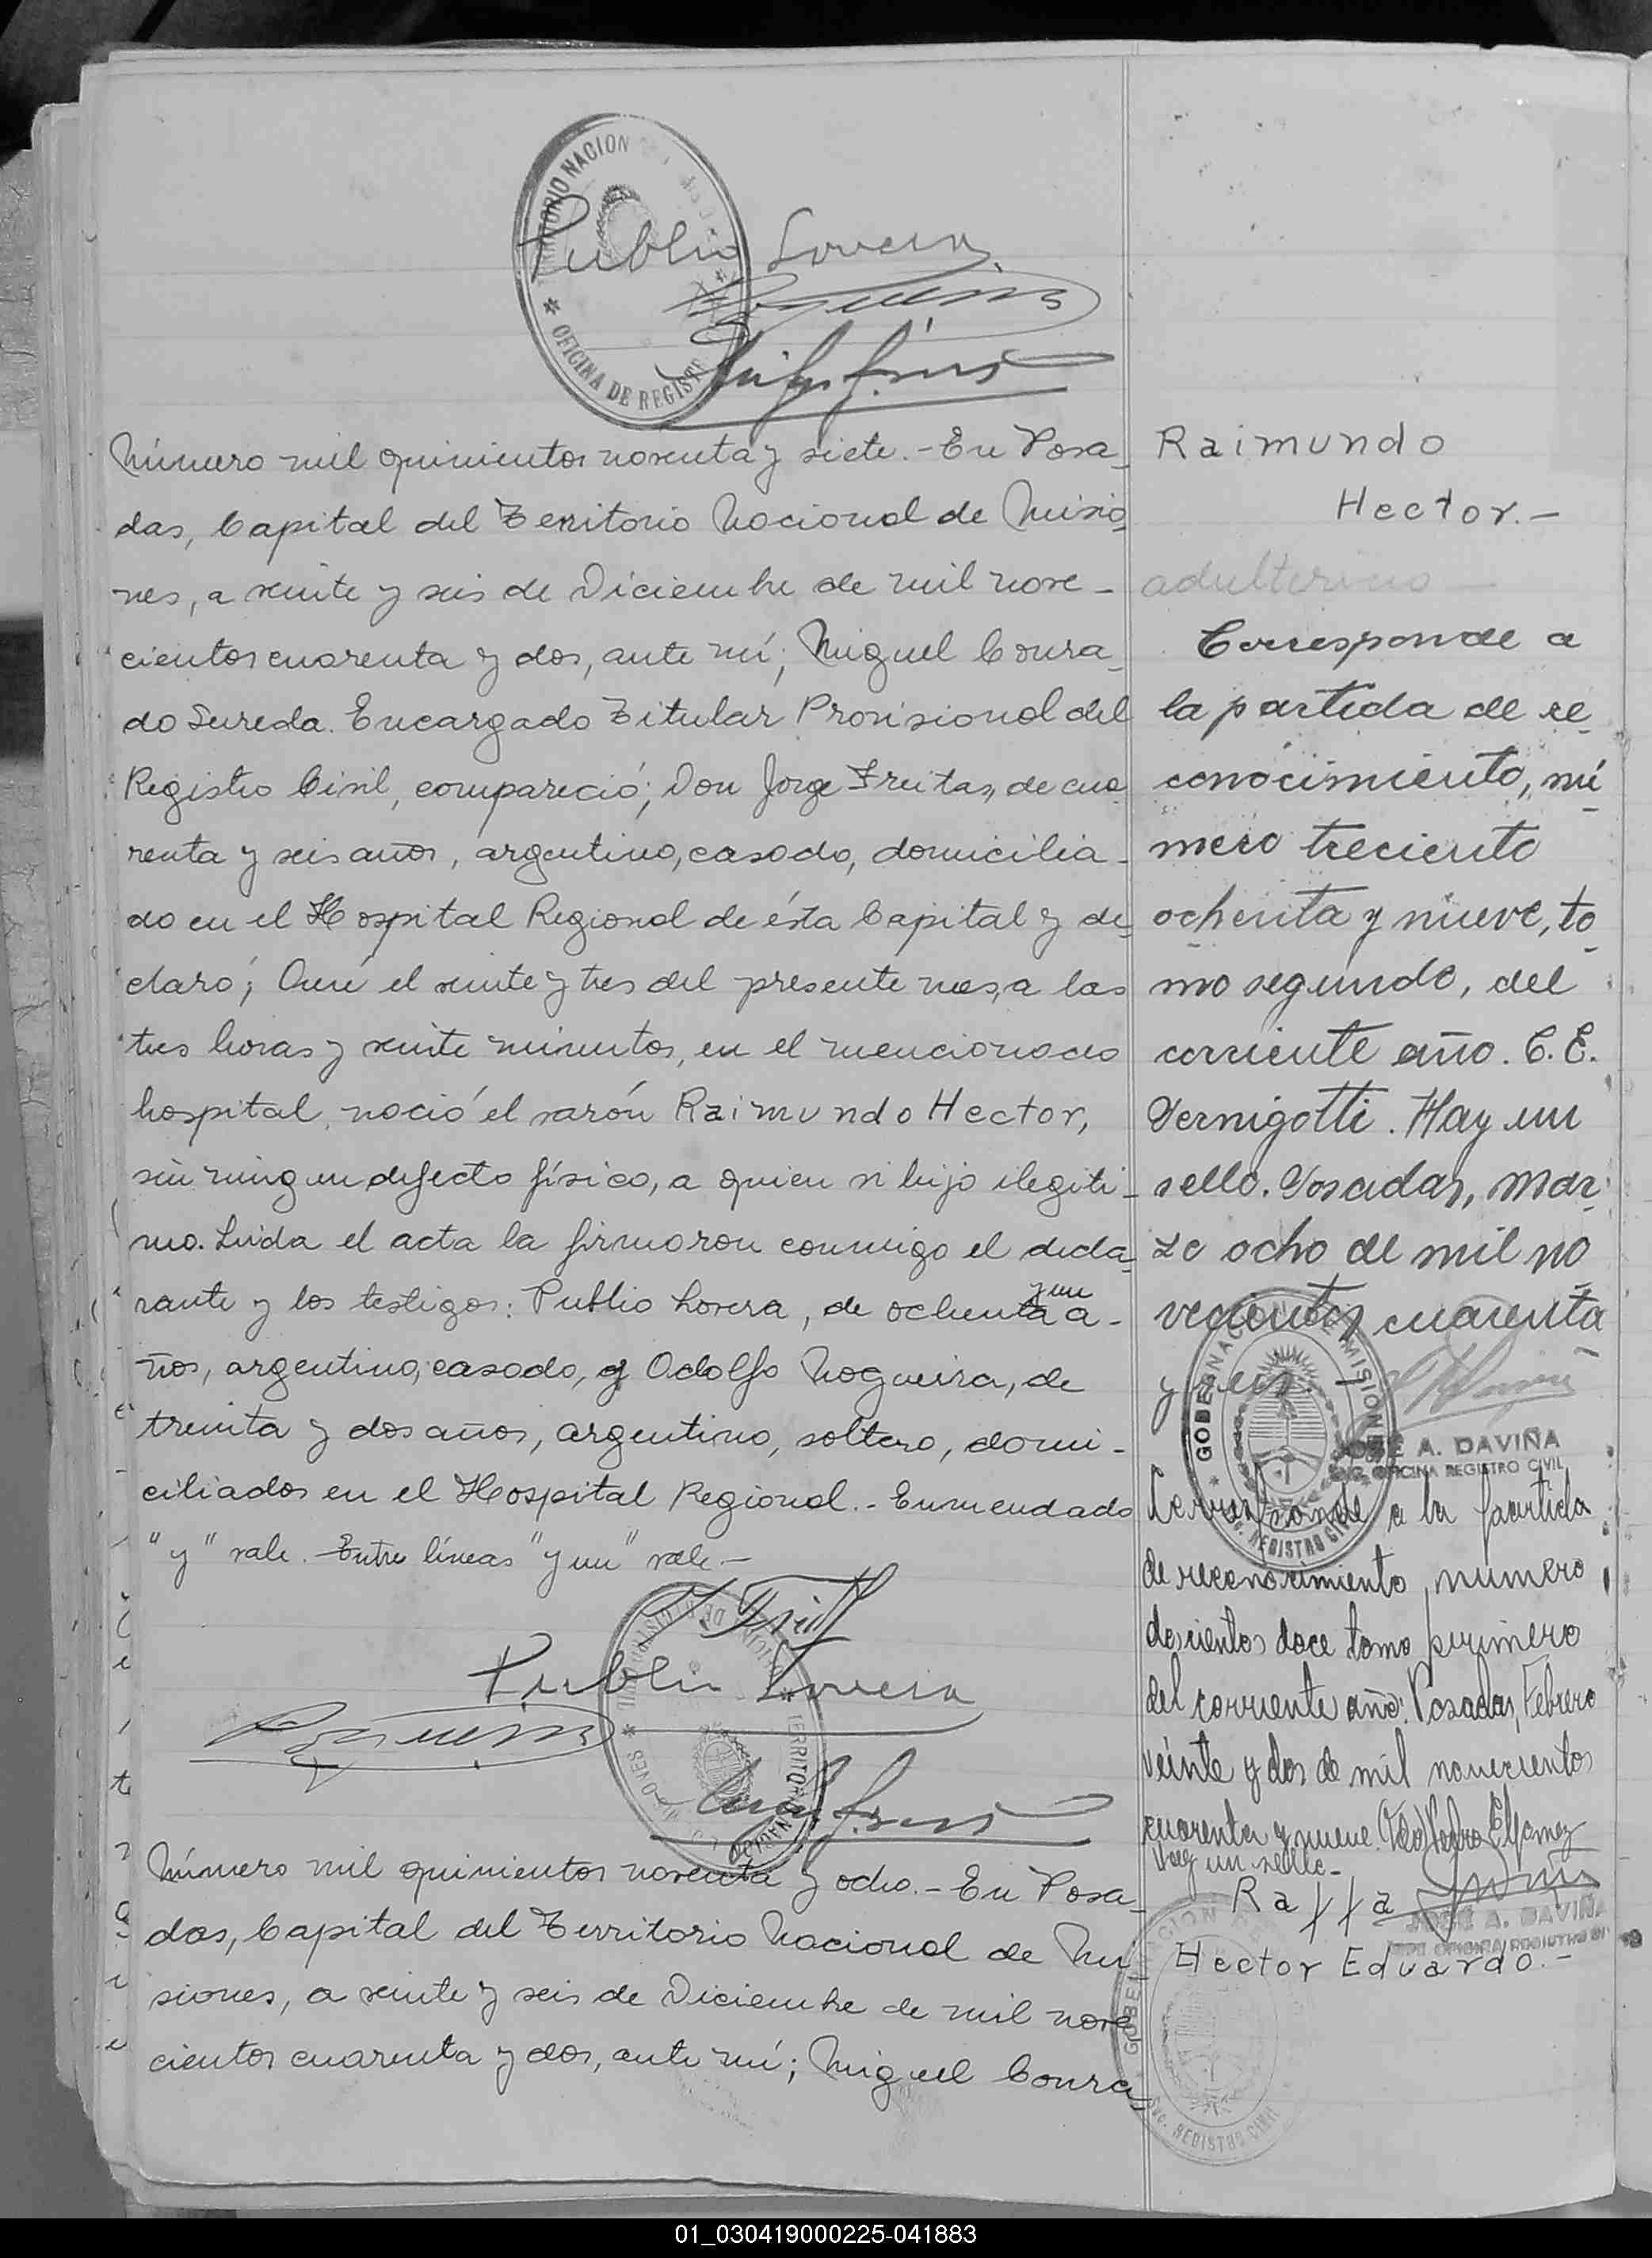 TERRITORIO NACION
Publio Lovera
OFICINA DE REGISTR
Número mil quinientos noventa y siete.- En Posa-
das, Capital del Territorio Nacional de Misio-
nes, a veinte y seis de Diciembre de mil nove-
cientos cuarenta y dos, ante mí; Miguel Conra-
do Sureda. Encargado Titular Provisional del
Registro Civil, compareció; Don Jorge Freitas, de cua
renta y seis años, argentino, casado, domicilia-
do en el Hospital Regional de ésta Capital y de-
claró; Que el veinte y tres del presente mes, a las
tres horas y veinte minutos, en el mencionado
hospital, nació el varón Raimundo Hector,
sin ningun defecto físico, a quien vi hijo ilegiti-
mo. Leida el acta la firmaron conmigo el decla-
rante y los testigos: Publio Lovera, de ochenta y un a-
ños, argentino, casado, y Adolfo Nogueira, de
treinta y dos años, argentino, soltero, domi-
ciliados en el Hospital Regional.- Enmendado
"y" vale. Entre líneas "y un" vale.-
Publio Lovera
Número mil quinientos noventa y ocho.- En Posa-
das, Capital del Territorio Nacional de Mi
siones, a veinte y seis de Diciembre de mil nove
cientos cuarenta y dos, ante mí; Miguel Conra-
Raimundo
Hector.-
adulterino
Corresponde a
la partida de re-
conocimiento, nú-
mero treciento
ochenta y nueve, to-
mo segundo, del
corriente año. C. E.
Vernigotti. Hay un
sello. Posadas, Mar-
zo ocho de mil no-
vecientos cuarenta
y
GOBERNACION MISIONES
REGISTRO CIVIL
JOSÉ A. DAVIÑA
OFICINA REGISTRO CIVIL
Corresponde a la partida
de reconocimiento, numero
doscientos doce tomo primero
del corriente año. Posadas, Febrero
veinte y dos de mil novecientos
cuarenta y nueve. Pedro E. Gomez
Hay un sello.-
Raffa
JOSÉ A. DAVIÑA
JEFE OFICINA REGISTRO
Hector Eduardo.-
REGISTRO CIVIL
01_030419000225-041883